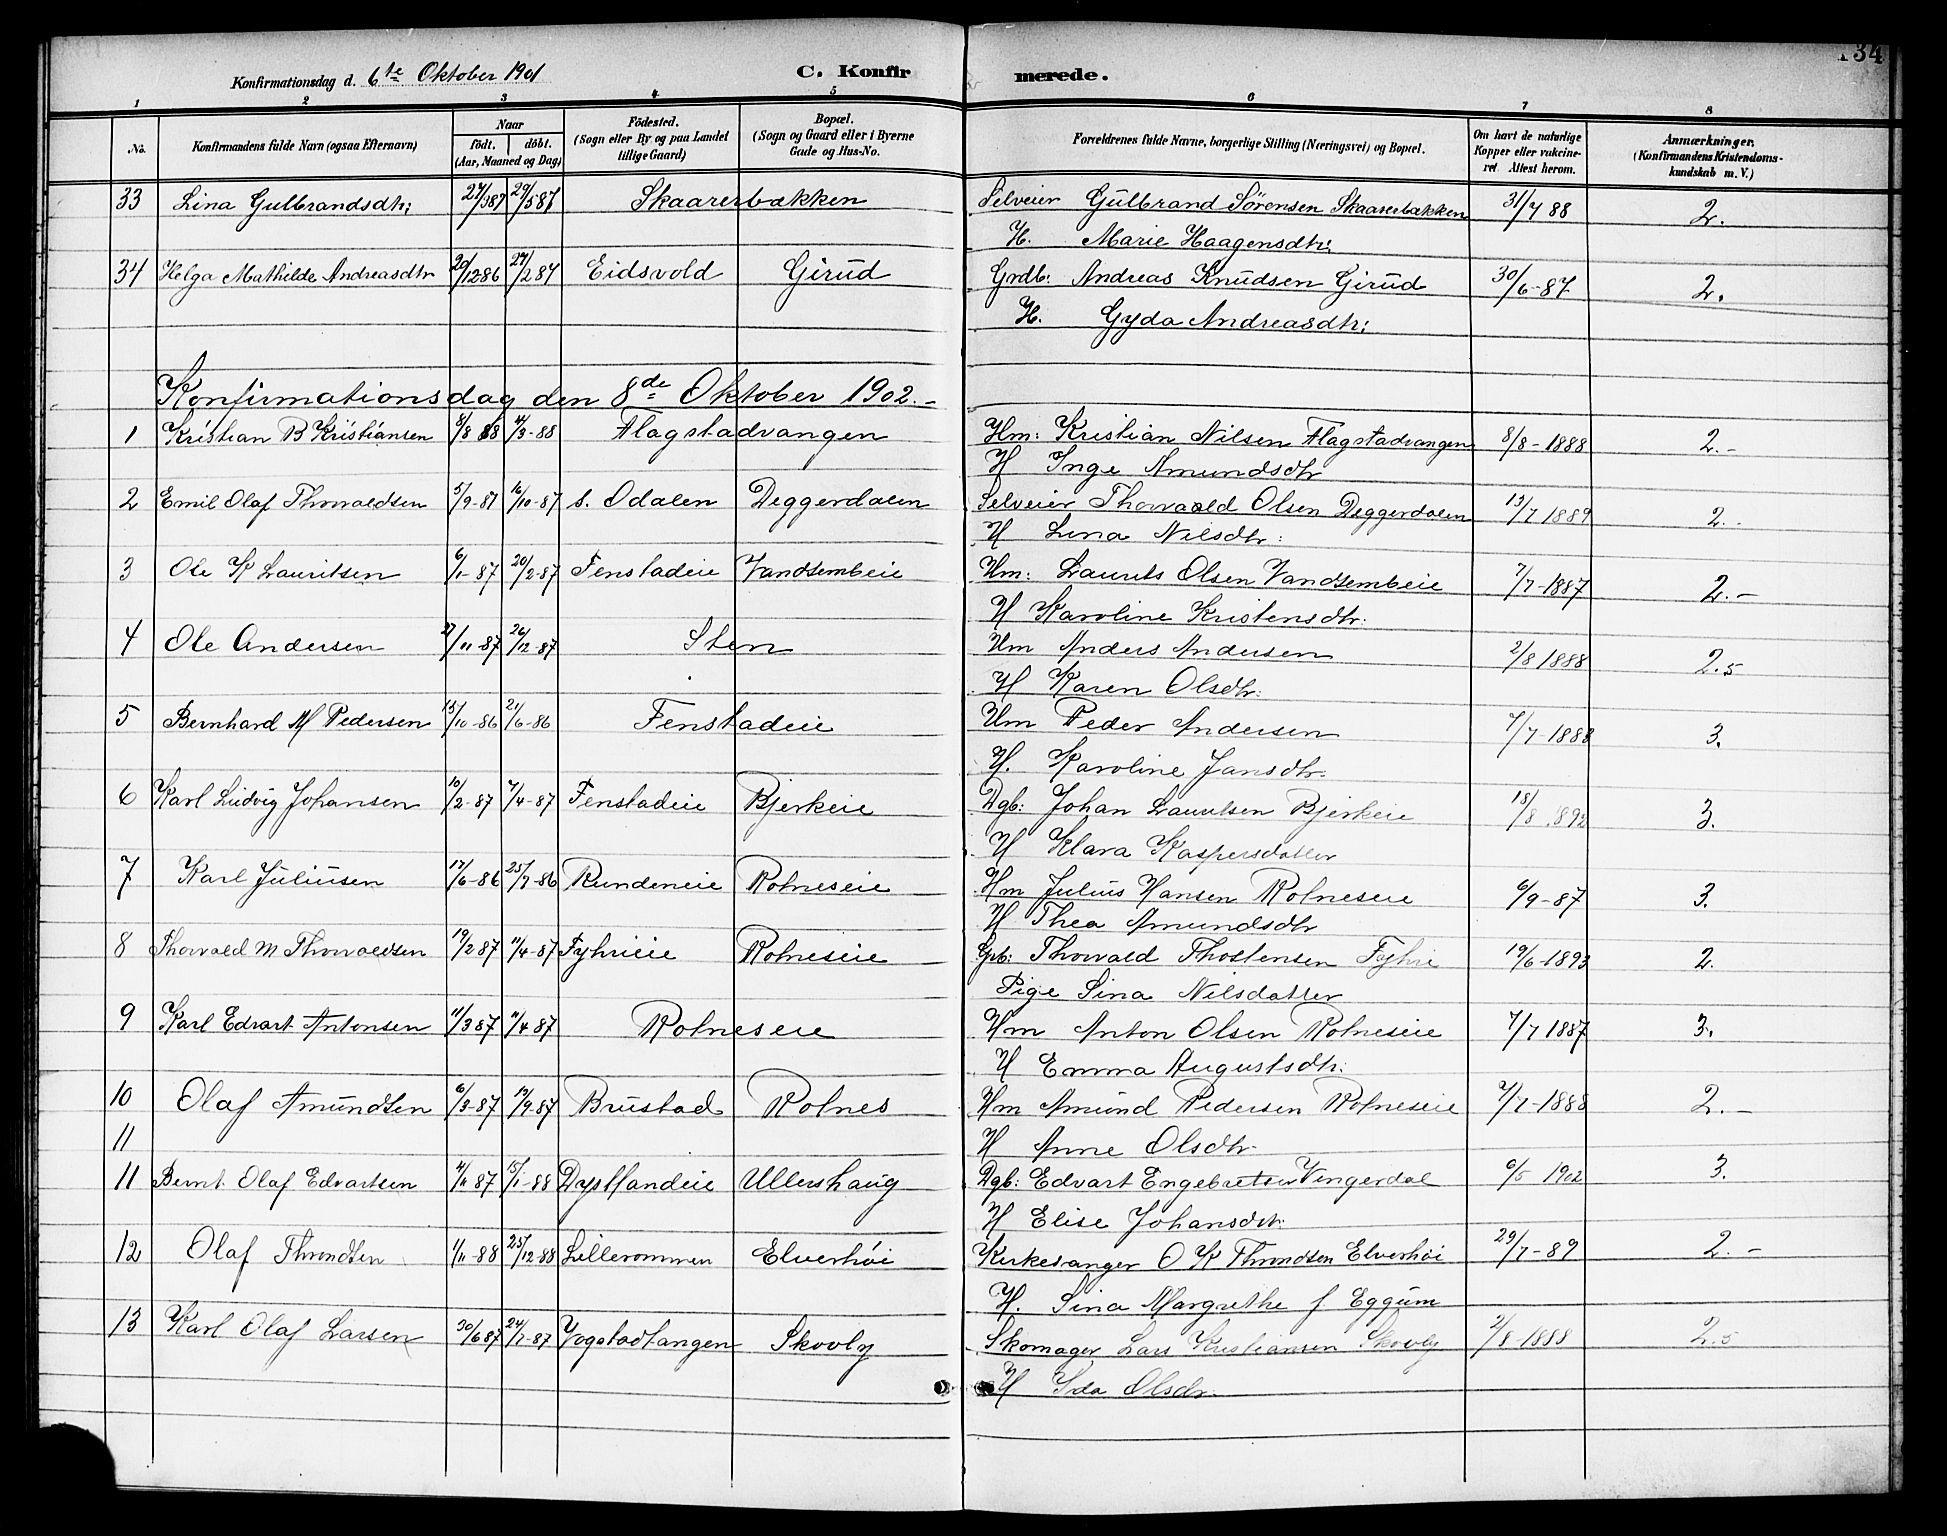 134
Konfirmationsdag d. 6te Oktober 1901 C. Konfir merede.
1 2 3 4 5 6 7 8
No. Konfirmandens fulde Navn (ogsaa Efternavn) Naar født. døbt. (Aar, Maaned og Dag) Fødested. (Sogn eller By og paa Landet tillige Gaard) Bopæl. (Sogn og Gaard eller i Byerne Gade og Hus-No. Forældrenes fulde Navne, borgerlige Stilling (Næringsvei) og Bopæl. Om havt de naturlige Kopper eller vakcineret. Attest herom. Anmærkninger. (Konfirmandens Kristendomskundskab m. V.)
33 Lina Gulbrandsdtr: 27/387 29/587 Skaarerbakken Selveier Gulbrand Sørensen Skaarerbakken 31/7 88 2.
H. Marie Haagensdtr:
34 Helga Mathilde Andreasdtr 20/1286 27/287 Eidsvold Girud Grdb: Andreas Knudsen Girud 30/6-87 2.
H. Gyda Andreasdtr:
Konfirmationsdag den 8de Oktober 1902.-
1 Kristian B Kristiansen 8/8 88 4/3-88 Flagstadvangen Hm: Kristian Nilsen Flagstadvangen 8/8-1888 2.-
H Inge Amundsdtr
2 Emil Olaf Thorvaldsen 5/9-87 16/10-87 s. Odalen Deggerdalen Selveier Thorvald Olsen Deggerdalen 13/7 1889 2.-
H Lina Nilsdtr:
3 Ole K Lauritsen 6/1-87 20/2-87 Fenstadeie Vandsembeie Hm: Laurits Olsen Vandsembeie 7/7-1887 2.-
H Karoline Kristensdtr.
4 Ole Andersen 27/11-87 26/12-87 Sten Hm Anders Andersen 2/8 1888 2.5
H Karen Olsdtr:
5 Bernhard M Pedersen 15/10-86 21/6-86 Fenstadeie Hm Peder Andersen 7/7-1888 3.
H. Karoline Jansdtr.
6 Karl Ludvig Johansen 10/2-87 7/4-87 Fenstadeie Bjerkeie Dgb: Johan Lauritsen Bjerkeie 18/8 1892 3.
H Klara Kaspersdatter
7 Karl Juliusen 17/6-86 25/7-86 Rundeneie Rotneseie Hm Julius Hansen Rotneseie 6/9-87 3.
H Thea Amundsdtr
8 Thorvald M Thorvaldsen 19/2 87 11/4-87 Fyhrieie Rotneseie Grb: Thorvald Thostensen Fyhri 19/6-1893 2.
Pige Lina Nilsdatter
9 Karl Edvart Antonsen 11/3 87 11/4-87 Rotneseie Hm Anton Olsen Rotneseie 7/7 1887 3.
H Emma Augustsdtr.
10 Olaf Amundsen 6/3-87 12/9-87 Brustad Rotnes Hm Amund Pedersen Rotneseie 7/7-1888 2.-
11 H Anne Olsdtr
11 Bernt Olaf Edvartsen 4/11 87 15/1-88 Dystlandeie Ullershaug Dgb: Edvart Engebretsen Vingerdal 6/5 1902 3.
H Elise Johansdtr:
12 Olaf Throndsen 1/11-88 25/12-88 Lillerommen Elverhöi Kirkesanger O K Throndsen Elverhöi 29/7-89 2.-
H. Lina Margrethe f Eggum
13 Karl Olaf Larsen 30/6 87 24/7-87 Vogstadtangen Skovly Skomager Lars Kristiansen Skovly 2/8-1888 2.5
H Ida Olsdr.